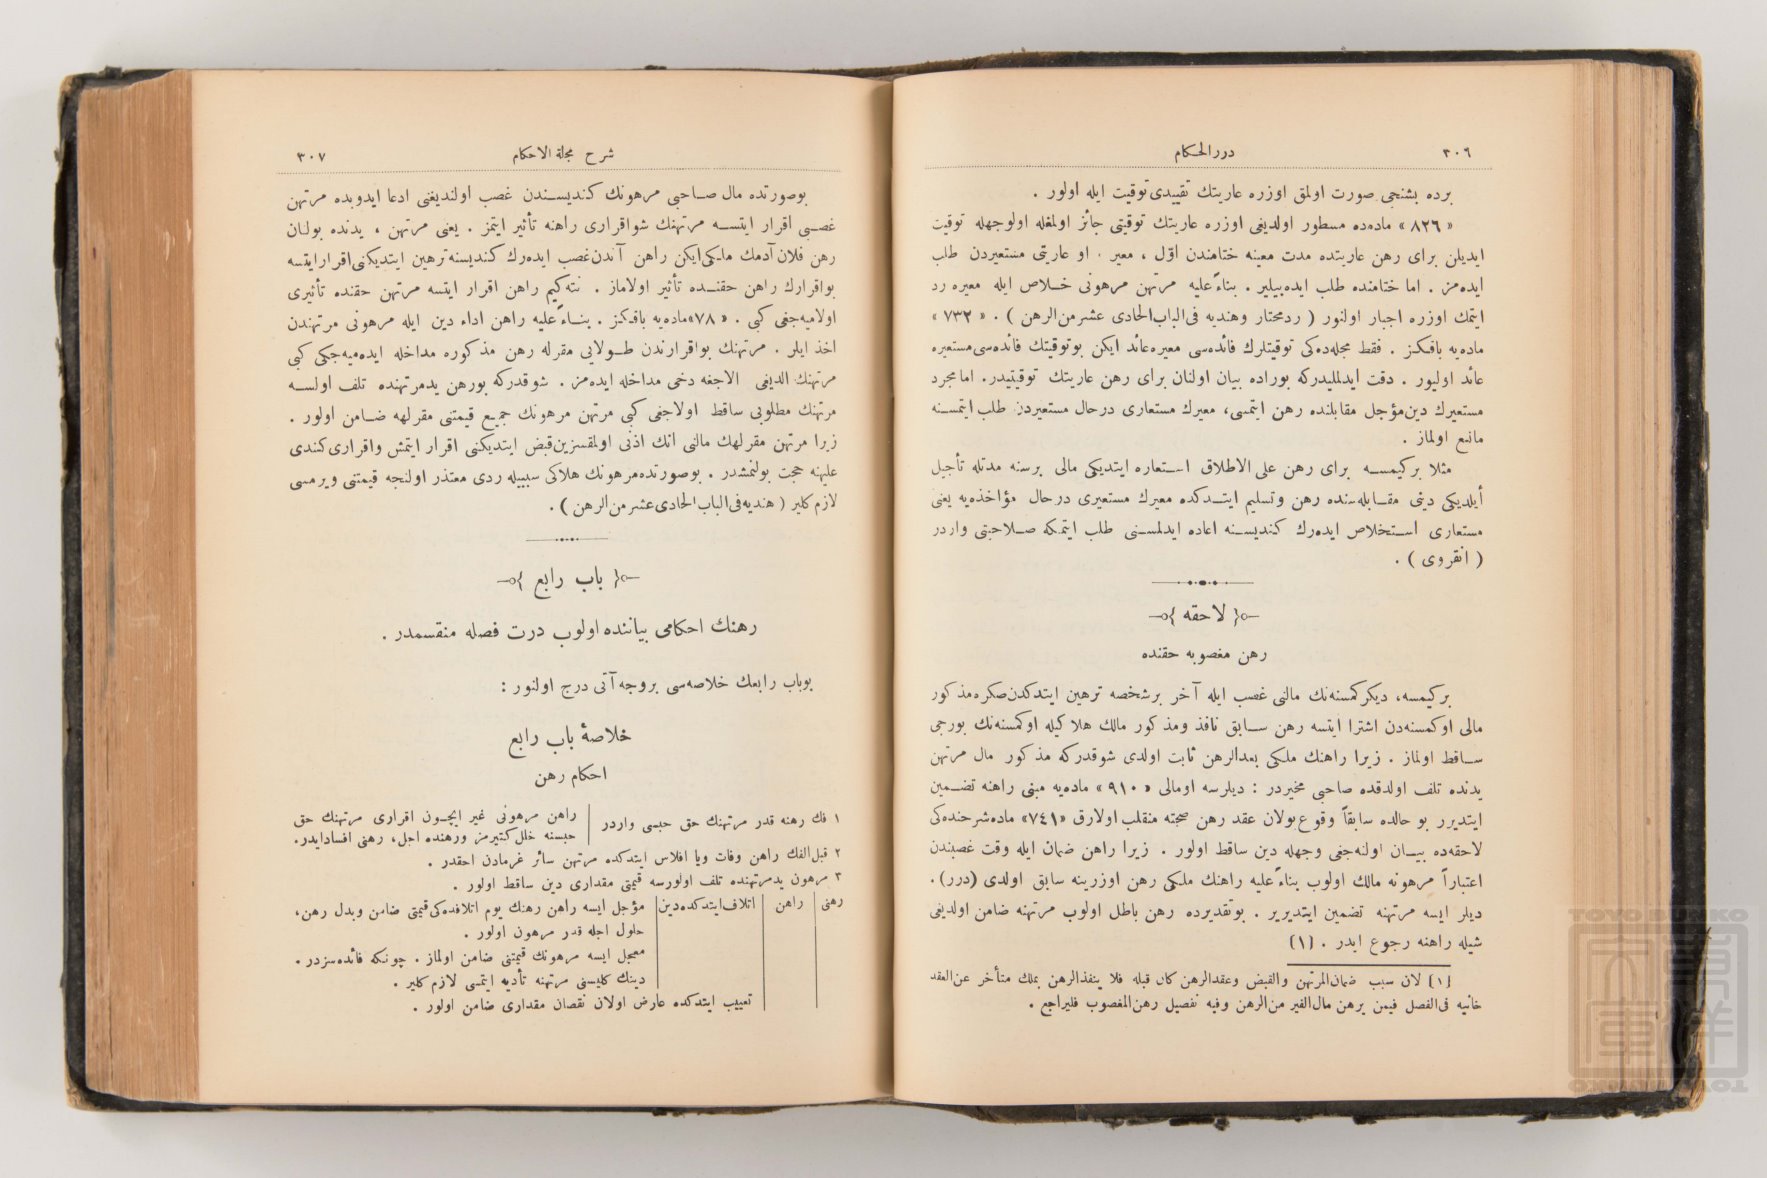 ٣٠٦
دررالحكام
برده بشنجى صورت اولمق اوزره عاريتك تقييدى توقيت ايله اولور .
« ٨٢٦ » ماده‌ده مسطور اولديغى اوزره عاريتك توقيتى جائز اولمغله اولوجهله توقيت
ايديلن براى رهن عاريتده مدت معينه ختامندن اوّل ، معير ، او عاريتى مستعيردن طلب
ايده‌مز . اما ختامنده طلب ايده‌بيلير . بناءً عليه مرتهن مرهونى خــلاص ايله معيره رد
ايتمك اوزره اجبار اولنور ( ردمختار وهنديه فى‌الباب‌الحادى عشر من‌الرهن ) . « ٧٣٢ »
ماده‌يه باقـكـز . فقط مجله‌ده‌كى توقيتلرك فائده‌سى معيره عائد ايكن بوتوقيتك فائده‌سى مستعيره
عائد اوليور . دقت ايدلمليدركه بوراده بيان اولنان براى رهن عاريتك توقيتيدر. اما مجرد
مستعيرك دين مؤجل مقابلنده رهن ايتمسى، معيرك مستعارى درحال مستعيردن طلب ايتمسـنه
مانع اولماز .
مثلا بركيمســه براى رهن على الاطلاق اســتعاره ايتديكى مالى برسنه مدتله تأجيل
أيلديكى دينى مقــابله‌سنده رهن وتسليم ايتــدكده معيرك مستعيرى درحال مؤاخذه‌يه يعنى
مستعارى اســتخلاص ايده‌رك كنديســنه اعاده ايدلمســنى طلب ايتمكه صــلاحيتى واردر
( انقروى ) .
لاحقه
رهن مغصوبه حقنده
بركيمسه، ديكركمسنه‌نك مالنى غصب ايله آخر برشخصه ترهين ايتدكدن صكره مذكور
مالى اوكمسنه‌دن اشترا ايتسه رهن ســابق نافذ ومذكور مالك هلاكيله اوكمسنه‌نك بورجى
ســاقط اولماز . زيرا راهنك ملكى بعدالرهن ثابت اولدى شوقدركه مذكور مال مرتهن
يدنده تلف اولدقده صاحبى مخيردر : ديلرسه اومالى « ٩١٠ » ماده‌يه مبنى راهنه تضــمين
ايتديرر بو حالده سابقاً وقوع‌بولان عقد رهن صحته منقلب اولارق «٧٤١» ماده شرحنده‌كى
لاحقه‌ده بيــان اولنه‌جغى وجهله دين ساقط اولور . زيرا راهن ضمان ايله وقت غصبندن
اعتباراً مرهونه مالك اولوب بناءً عليه راهنك ملكى رهن اوزرينه سابق اولدى (درر).
ديلر ايسه مرتهنه تضمين ايتديرير . بوتقديرده رهن باطل اولوب مرتهنه ضامن اولديغى
شيله راهنه رجوع ايدر . (١)
(١) لان سبب ضمان‌المرتهن والقبض وعقدالرهن كان قبله فلا ينفذالرهن بملك متأخر عن‌العقد
خانيه فى‌الفصل فيمن يرهن مال‌الغير من‌الرهن وفيه تفصيل رهن‌المغصوب فليراجع .
شرح مجلة الاحكام
٣٠٧
بوصورتده مال صــاحبى مرهونك كنديســندن غصب اولنديغنى ادعا ايدوبده مرتهن
غصــبى اقرار ايتســه مرتهنك شواقرارى راهنه تأثير ايتمز . يعنى مرتهن ، يدنده بولنان
رهن فلان آدمك ملكى‌ايكن راهن آندن غصب ايده‌رك كنديسنه ترهين ايتديكنى‌اقرارايتسه
بواقرارك راهن حقنــده تأثير اولاماز . نته‌كيم راهن اقرار ايتسه مرتهن حقنده تأثيرى
اولاميه‌جغى كبى . « ٧٨ » ماده‌يه باقـكـز . بنــاءً عليه راهن اداء دين ايله مرهونى مرتهندن
اخذ ايلر . مرتهنك بواقرارندن طــولايى مقرله رهن مذكوره مداخله ايده‌ميه‌جكى كبى
مرتهنك الديغى الاجغه دخى مداخله ايده‌مز . شوقدركه بورهن يدمرتهنده تلف اولســه
مرتهنك مطلوبى ساقط اولاجغى كبى مرتهن مرهونك جميع قيمتنى مقرلهه ضــامن اولور .
زيرا مرتهن مقرلهك مالنى انك اذنى اولمقسزين قبض ايتديكنى اقرار ايتمش واقرارى كندى
عليهنه حجت بولنمشدر . بوصورتده مرهونك هلاكى سببيله ردى متعذر اولنجه قيمتنى ويرمسى
لازم كلير ( هنديه فى‌الباب‌الحادى عشر من‌الرهن ) .
باب رابع
رهنك احكامى بياننده اولوب درت فصله منقسمدر .
بوباب رابعك خلاصه‌سى بروجه آتى درج اولنور :
خلاصهٔ باب رابع
احكام رهن
١ فك رهنه قدر مرتهنك حق حبسى واردر
راهن مرهونى غير ايچــون اقرارى مرتهنك حق
حبسنه خلل كتيرمز ورهنده اجل، رهنى افسادايدر.
٢ قبل‌الفك راهن وفات ويا افلاس ايتدكده مرتهن سائر غرمادن احقدر .
٣ مرهون يدمرتهنده تلف اولورسه قيمتى مقدارى دين ساقط اولور .
رهنى
راهن
اتلاف‌ايتدكده‌دين
مؤجل ايسه راهن رهنك يوم اتلافده‌كى‌قيمتنى ضامن وبدل رهن،
حلول اجله قدر مرهون اولور .
معجل ايسه مرهونك قيمتنى ضامن اولماز . چونكه فائده‌سزدر .
دينك كليسنى مرتهنه تأديه ايتمسى لازم كلير .
تعييب ايتدكده عارض اولان نقصان مقدارى ضامن اولور .
TOYO BUNKO